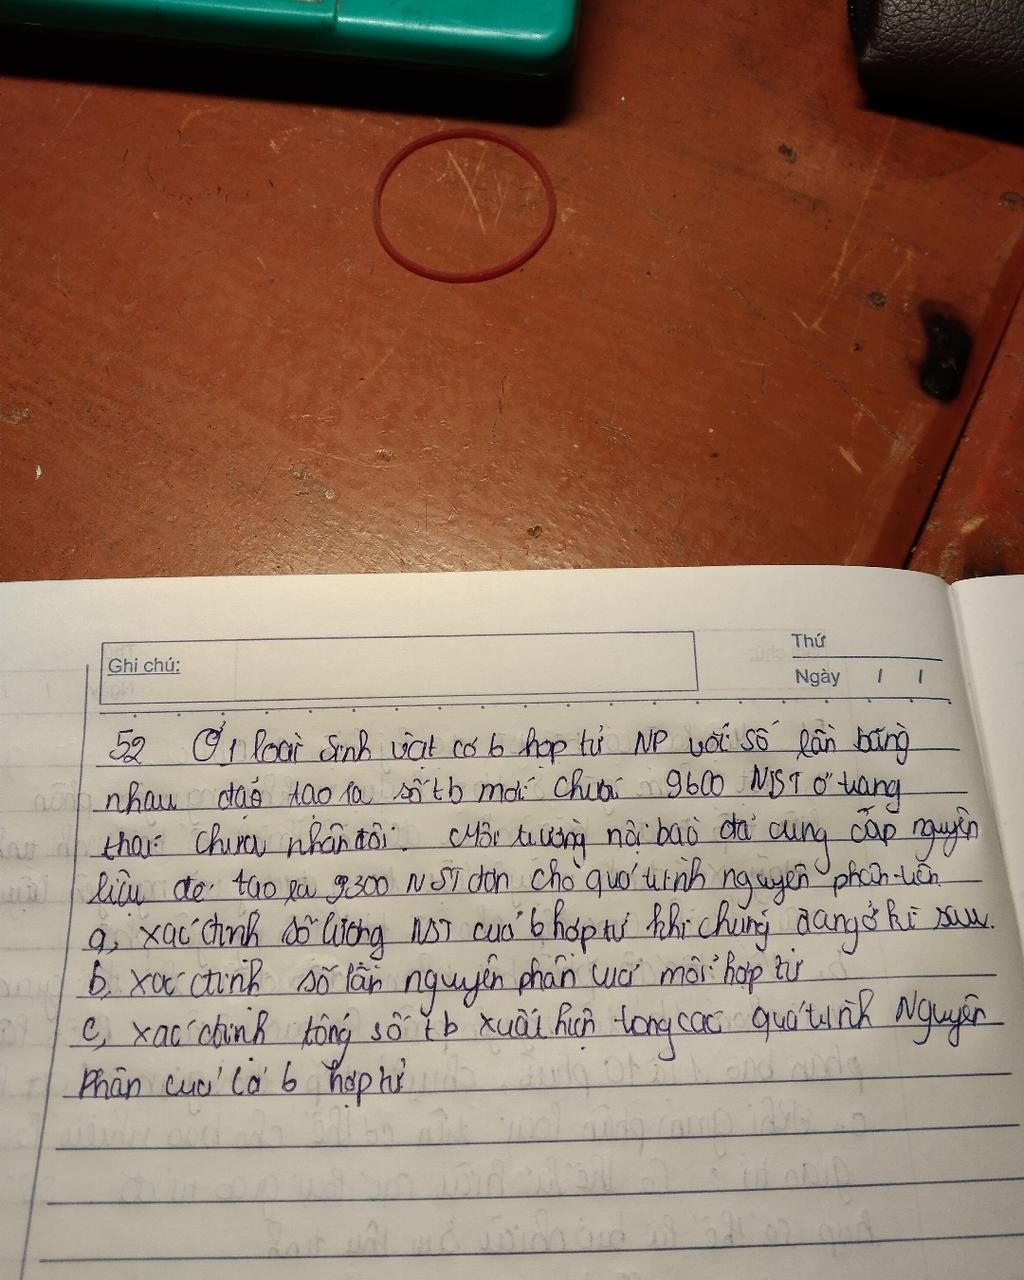 Ghi chú:
Thứ
Ngày / /
52 Ở 1 loài sinh vật có 6 hợp tử NP với số lần bằng
nhau đã tạo ra số tb mới chứa 9600 NST ở trạng
thái chưa nhân đôi. Môi trường nội bào đã cung cấp nguyên
liệu để tạo ra 9300 NST đơn cho quá trình nguyên phân trên
a, xác định số lượng NST của 6 hợp tử khi chúng đang ở kì sau.
b, xác định số lần nguyên phân của mỗi hợp tử
c, xác định tổng số tb xuất hiện trong các quá trình Nguyên
Phân của cả 6 hợp tử